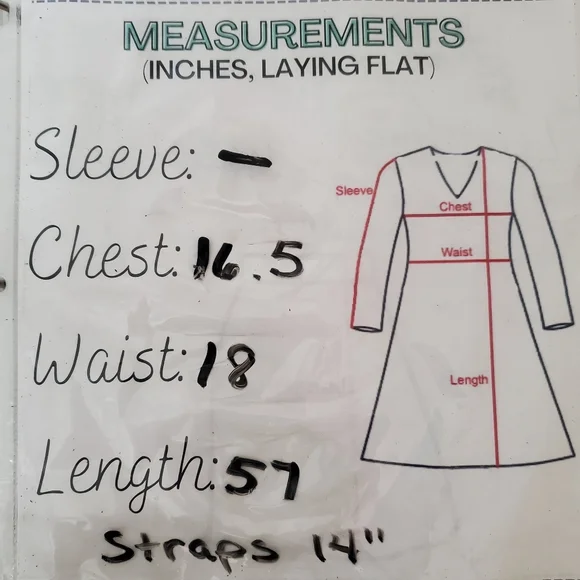 MEASUREMENTS
(INCHES, LAYING FLAT)
Sleeve: –
Chest: 16.5
Waist: 18
Length: 57
Straps 14"
Sleeve
Chest
Waist
Length